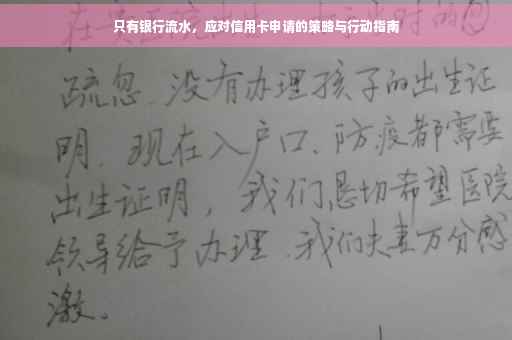 只有银行流水，应对信用卡申请的策略与行动指南
疏忽、没有办理孩子的出生证
明、现在入户口、防疫都需要
出生证明，我们恳切希望医院
领导给予办理、我们夫妻万分感
激。